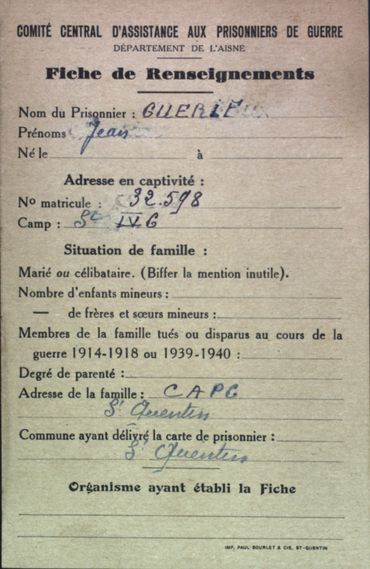 COMITÉ CENTRAL D'ASSISTANCE AUX PRISONNIERS DE GUERRE
DÉPARTEMENT DE L'AISNE
Fiche de Renseignements
Nom du Prisonnier : GUERLE
Prénoms Jean
Né le à
Adresse en captivité :
No matricule : 32.598
Camp : St IV G
Situation de famille :
Marié ou célibataire. (Biffer la mention inutile).
Nombre d'enfants mineurs :
— de frères et sœurs mineurs :
Membres de la famille tués ou disparus au cours de la
guerre 1914-1918 ou 1939-1940 :
Degré de parenté :
Adresse de la famille : CAPG
St Quentin
Commune ayant délivré la carte de prisonnier :
St Quentin
Organisme ayant établi la Fiche
IMP. PAUL BOURLET & CIE, ST-QUENTIN